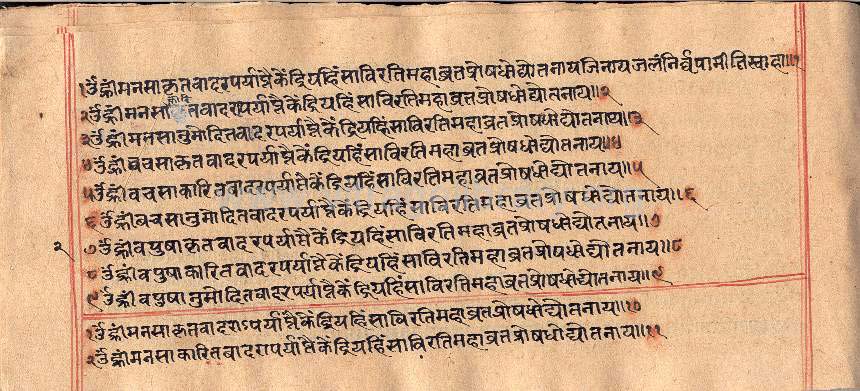 १ उँ ह्रीं मनसाकृतवादरपर्याप्तैकेंद्रियहिंसाविरतिमहाव्रतप्रोषधोद्योतनायजिनायजलंनिर्वपामीतिस्वाहा॥१
२ उँ ह्रीं मनसाकारितवादरपर्याप्तैकेंद्रियहिंसाविरतिमहाव्रतप्रोषधोद्योतनाय॥२
३ उँ ह्रीं मनसानुमोदितवादरपर्याप्तैकेंद्रियहिंसाविरतिमहाव्रतप्रोषधोद्योतनाय॥३
४ उँ ह्रीं वचसाकृतवादरपर्याप्तैकेंद्रियहिंसाविरतिमहाव्रतप्रोषधोद्योतनाय॥४
५ उँ ह्रीं वचसाकारितवादरपर्याप्तैकेंद्रियहिंसाविरतिमहाव्रतप्रोषधोद्योतनाय॥५
६ उँ ह्रीं वचसानुमोदितवादरपर्याप्तैकेंद्रियहिंसाविरतिमहाव्रतप्रोषधोद्योतनाय॥६
२ ७ उँ ह्रीं वपुषाकृतवादरपर्याप्तैकेंद्रियहिंसाविरतिमहाव्रतप्रोषधोद्योतनाय॥७
८ उँ ह्रीं वपुषाकारितवादरपर्याप्तैकेंद्रियहिंसाविरतिमहाव्रतप्रोषधोद्योतनाय॥८
९ उँ ह्रीं वपुषानुमोदितवादरपर्याप्तैकेंद्रियहिंसाविरतिमहाव्रतप्रोषधोद्योतनाय॥९
१ उँ ह्रीं मनसाकृतवादराऽपर्याप्तैकेंद्रियहिंसाविरतिमहाव्रतप्रोषधोद्योतनाय॥१०
२ उँ ह्रीं मनसाकारितवादरापर्याप्तैकेंद्रियहिंसाविरतिमहाव्रतप्रोषधोद्योतनाय॥११